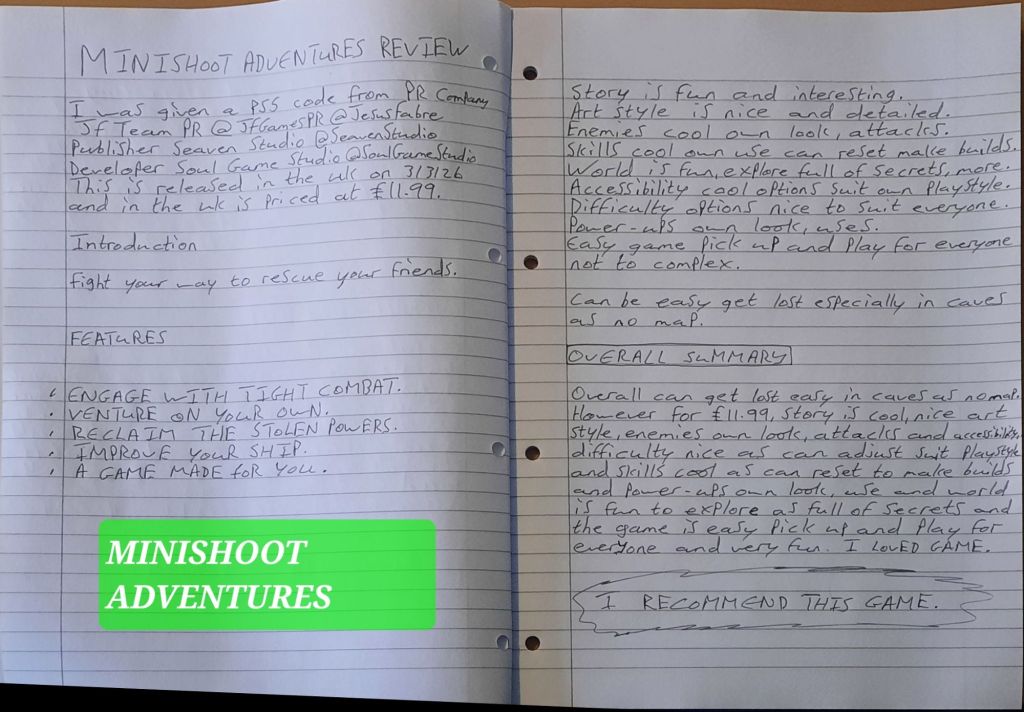 MINISHOOT ADVENTURES REVIEW
I was given a PS5 code from PR Company
Jf Team PR @JfGamesPR @JesusFabre
Publisher Seaven Studio @SeavenStudio
Developer Soul Game Studio @SoulGameStudio
This is released in the uk on 3/3/26
and in the uk is priced at £11.99.
Introduction
Fight your way to rescue your friends.
FEATURES
• ENGAGE WITH TIGHT COMBAT.
• VENTURE ON YOUR OWN.
• RECLAIM THE STOLEN POWERS.
• IMPROVE YOUR SHIP.
• A GAME MADE FOR YOU.
MINISHOOT
ADVENTURES
Story is fun and interesting.
Art style is nice and detailed.
Enemies cool own look, attacks.
Skills cool own use can reset make builds.
World is fun, explore full of secrets, more.
Accessibility cool options suit own playstyle.
Difficulty options nice to suit everyone.
Power-ups own look, uses.
Easy game pick up and play for everyone
not to complex.
Can be easy get lost especially in caves
as no map.
OVERALL SUMMARY
Overall can get lost easy in caves as no map.
However for £11.99, story is cool, nice art
style, enemies own look, attacks and accessibility,
difficulty nice as can adjust suit playstyle
and skills cool as can reset to make builds
and power-ups own look, use and world
is fun to explore as full of secrets and
the game is easy pick up and play for
everyone and very fun. I LOVED GAME.
I RECOMMEND THIS GAME.